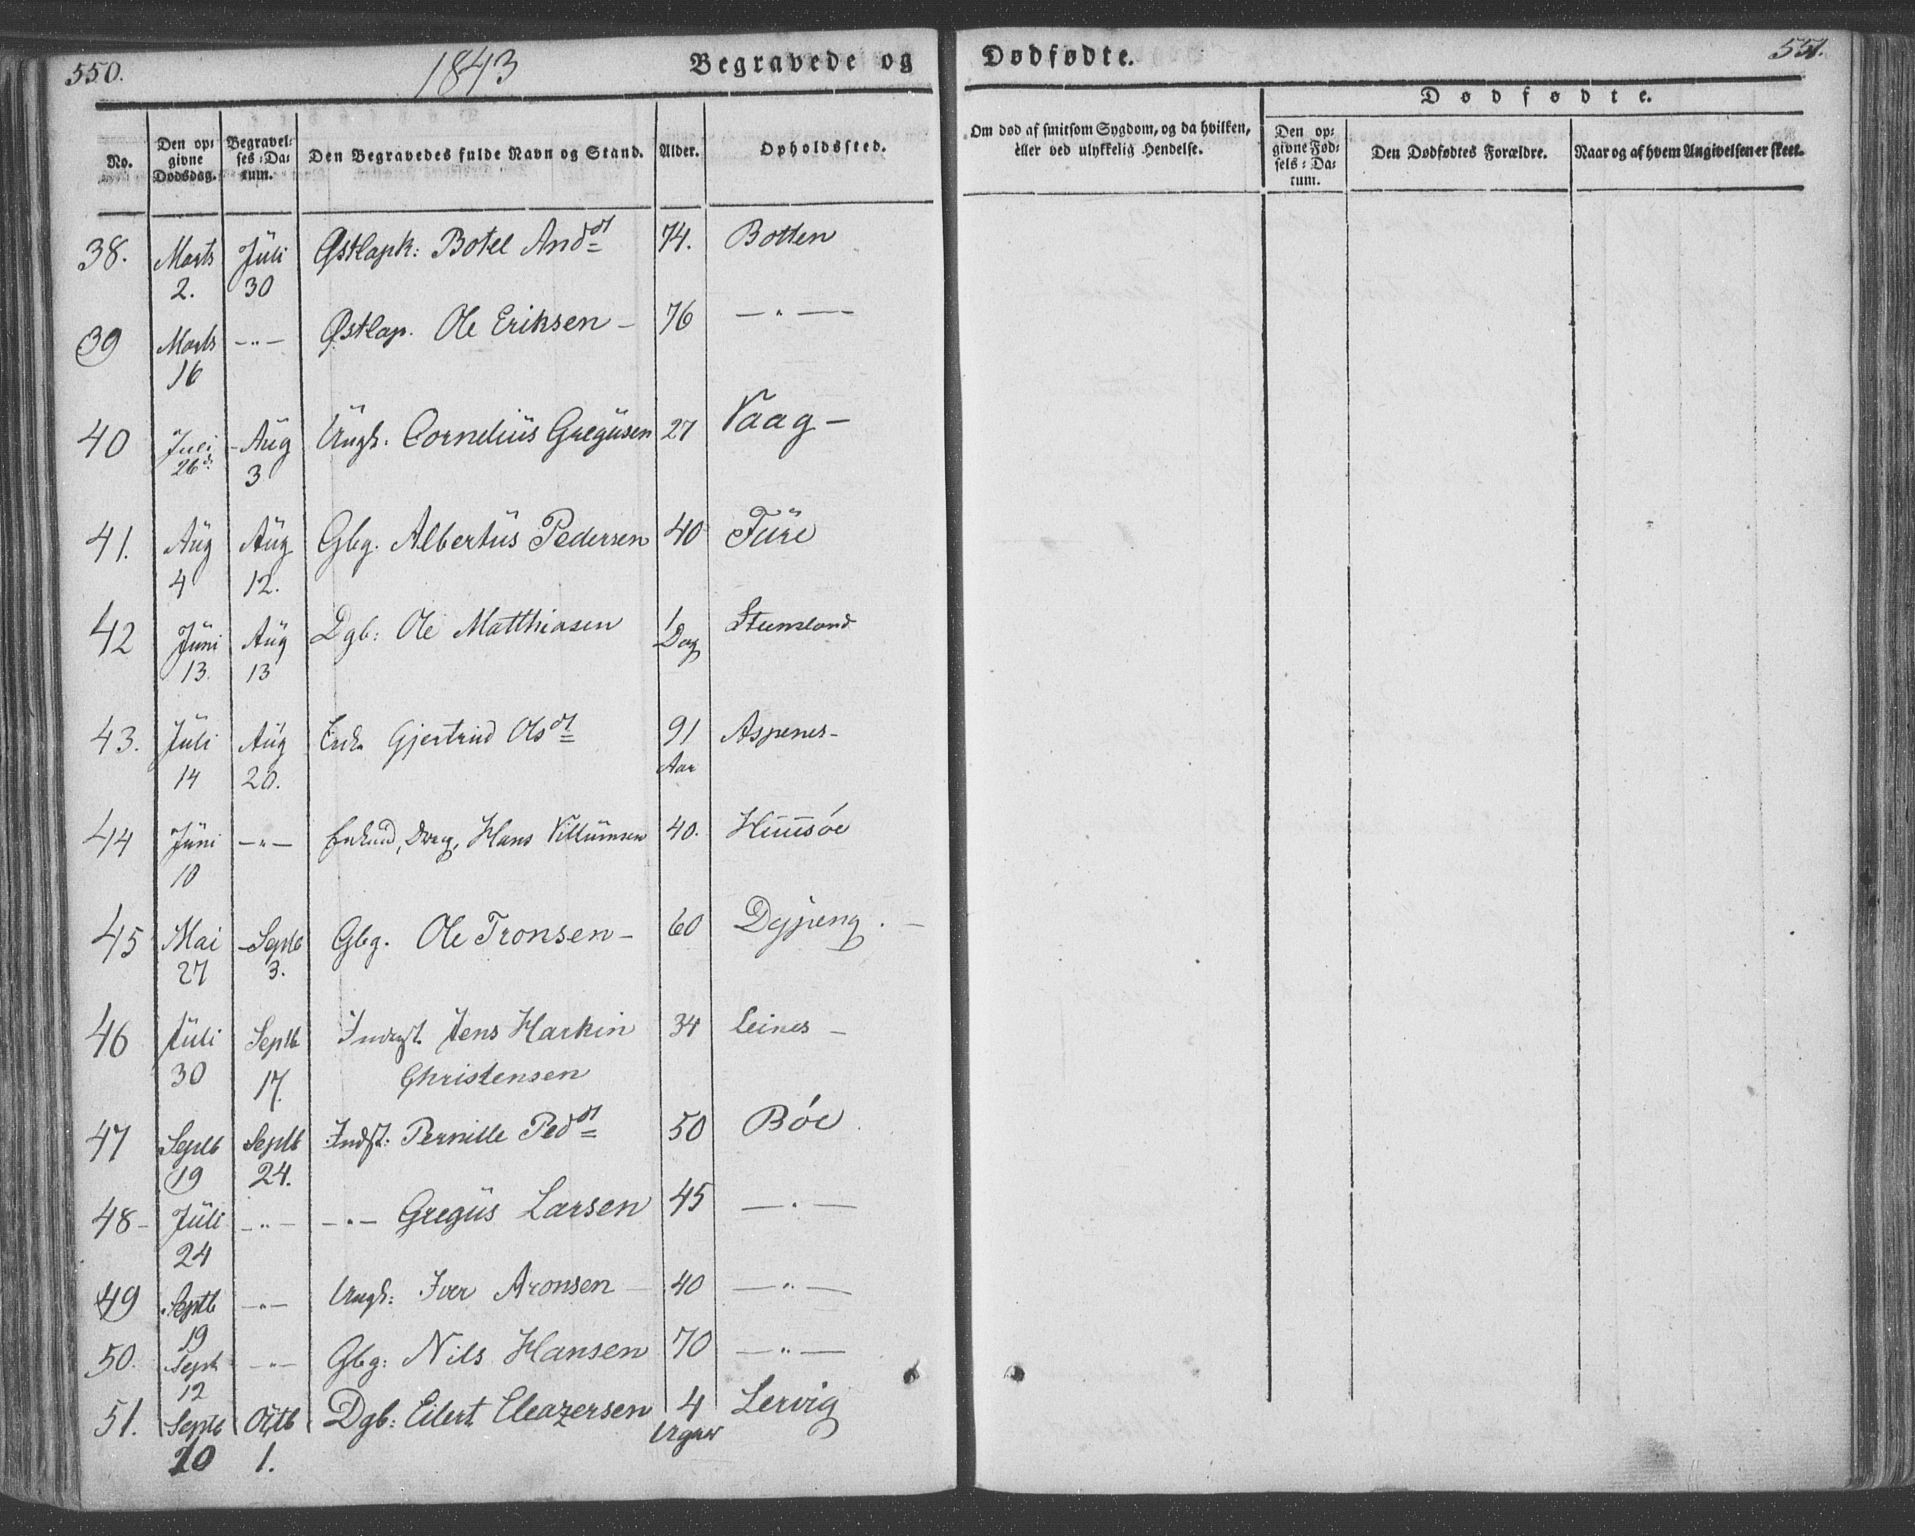 550.
1843
Begravede og
Dødfødte.
551.
No.
Den op:
givne
Dødsdag.
Begravel:
ses:Da:
tum.
Den Begravedes fulde Navn og Stand.
Alder.
Opholdssted.
Om død af smitsom Sygdom, og da hvilken,
eller ved ulykkelig Hendelse.
Dødfødte.
Den op:
givne Fød:
sels:Da:
tum.
Den Dødfødtes Forældre.
Naar og af hvem Angivelsen er skeet.
38. Marts 2. Juli 30 Østlapk: Botel Andst 74. Botten
39 Marts 16 —"— Østlap. Ole Eriksen — 76 —"—
40 Juli 26d: Aug 3 Ungk. Cornelius Gregusen 27 Vaag —
41. Aug 4 Aug 12. Gbg. Albertus Pedersen 40 Füre
42 Juni 13. Aug 13 Dgb: Ole Matthiasen 1 Dag
43. Juli 14 Aug 20. Enk. Gjertrud Olsdt 91 Aar Aspenes-
44 Juni 10 —"— Hans Villumsen 40. Huusøe
45 Mai 27 Septb 3. Gbg. Ole Tronsen — 60 Dypeng. —
46 Juli 30 Septb 17. Jens Harkin 34 Leines —
Christensen
47 Septb 19 Septb 24. Indst: Pernille Peddt 50 Bøe
48 Juli 24 —"— —"— Gregus Larsen 45 —"—
49 Septb 19 —"— Ungk: Iver Aronsen 40 —"—
50. Septb 12 —"— Gbg: Nils Hansen 70 —"—
51. Septb 10 Octb 1. Dgb: Eilert Eleazersen 4 Uger Lervig